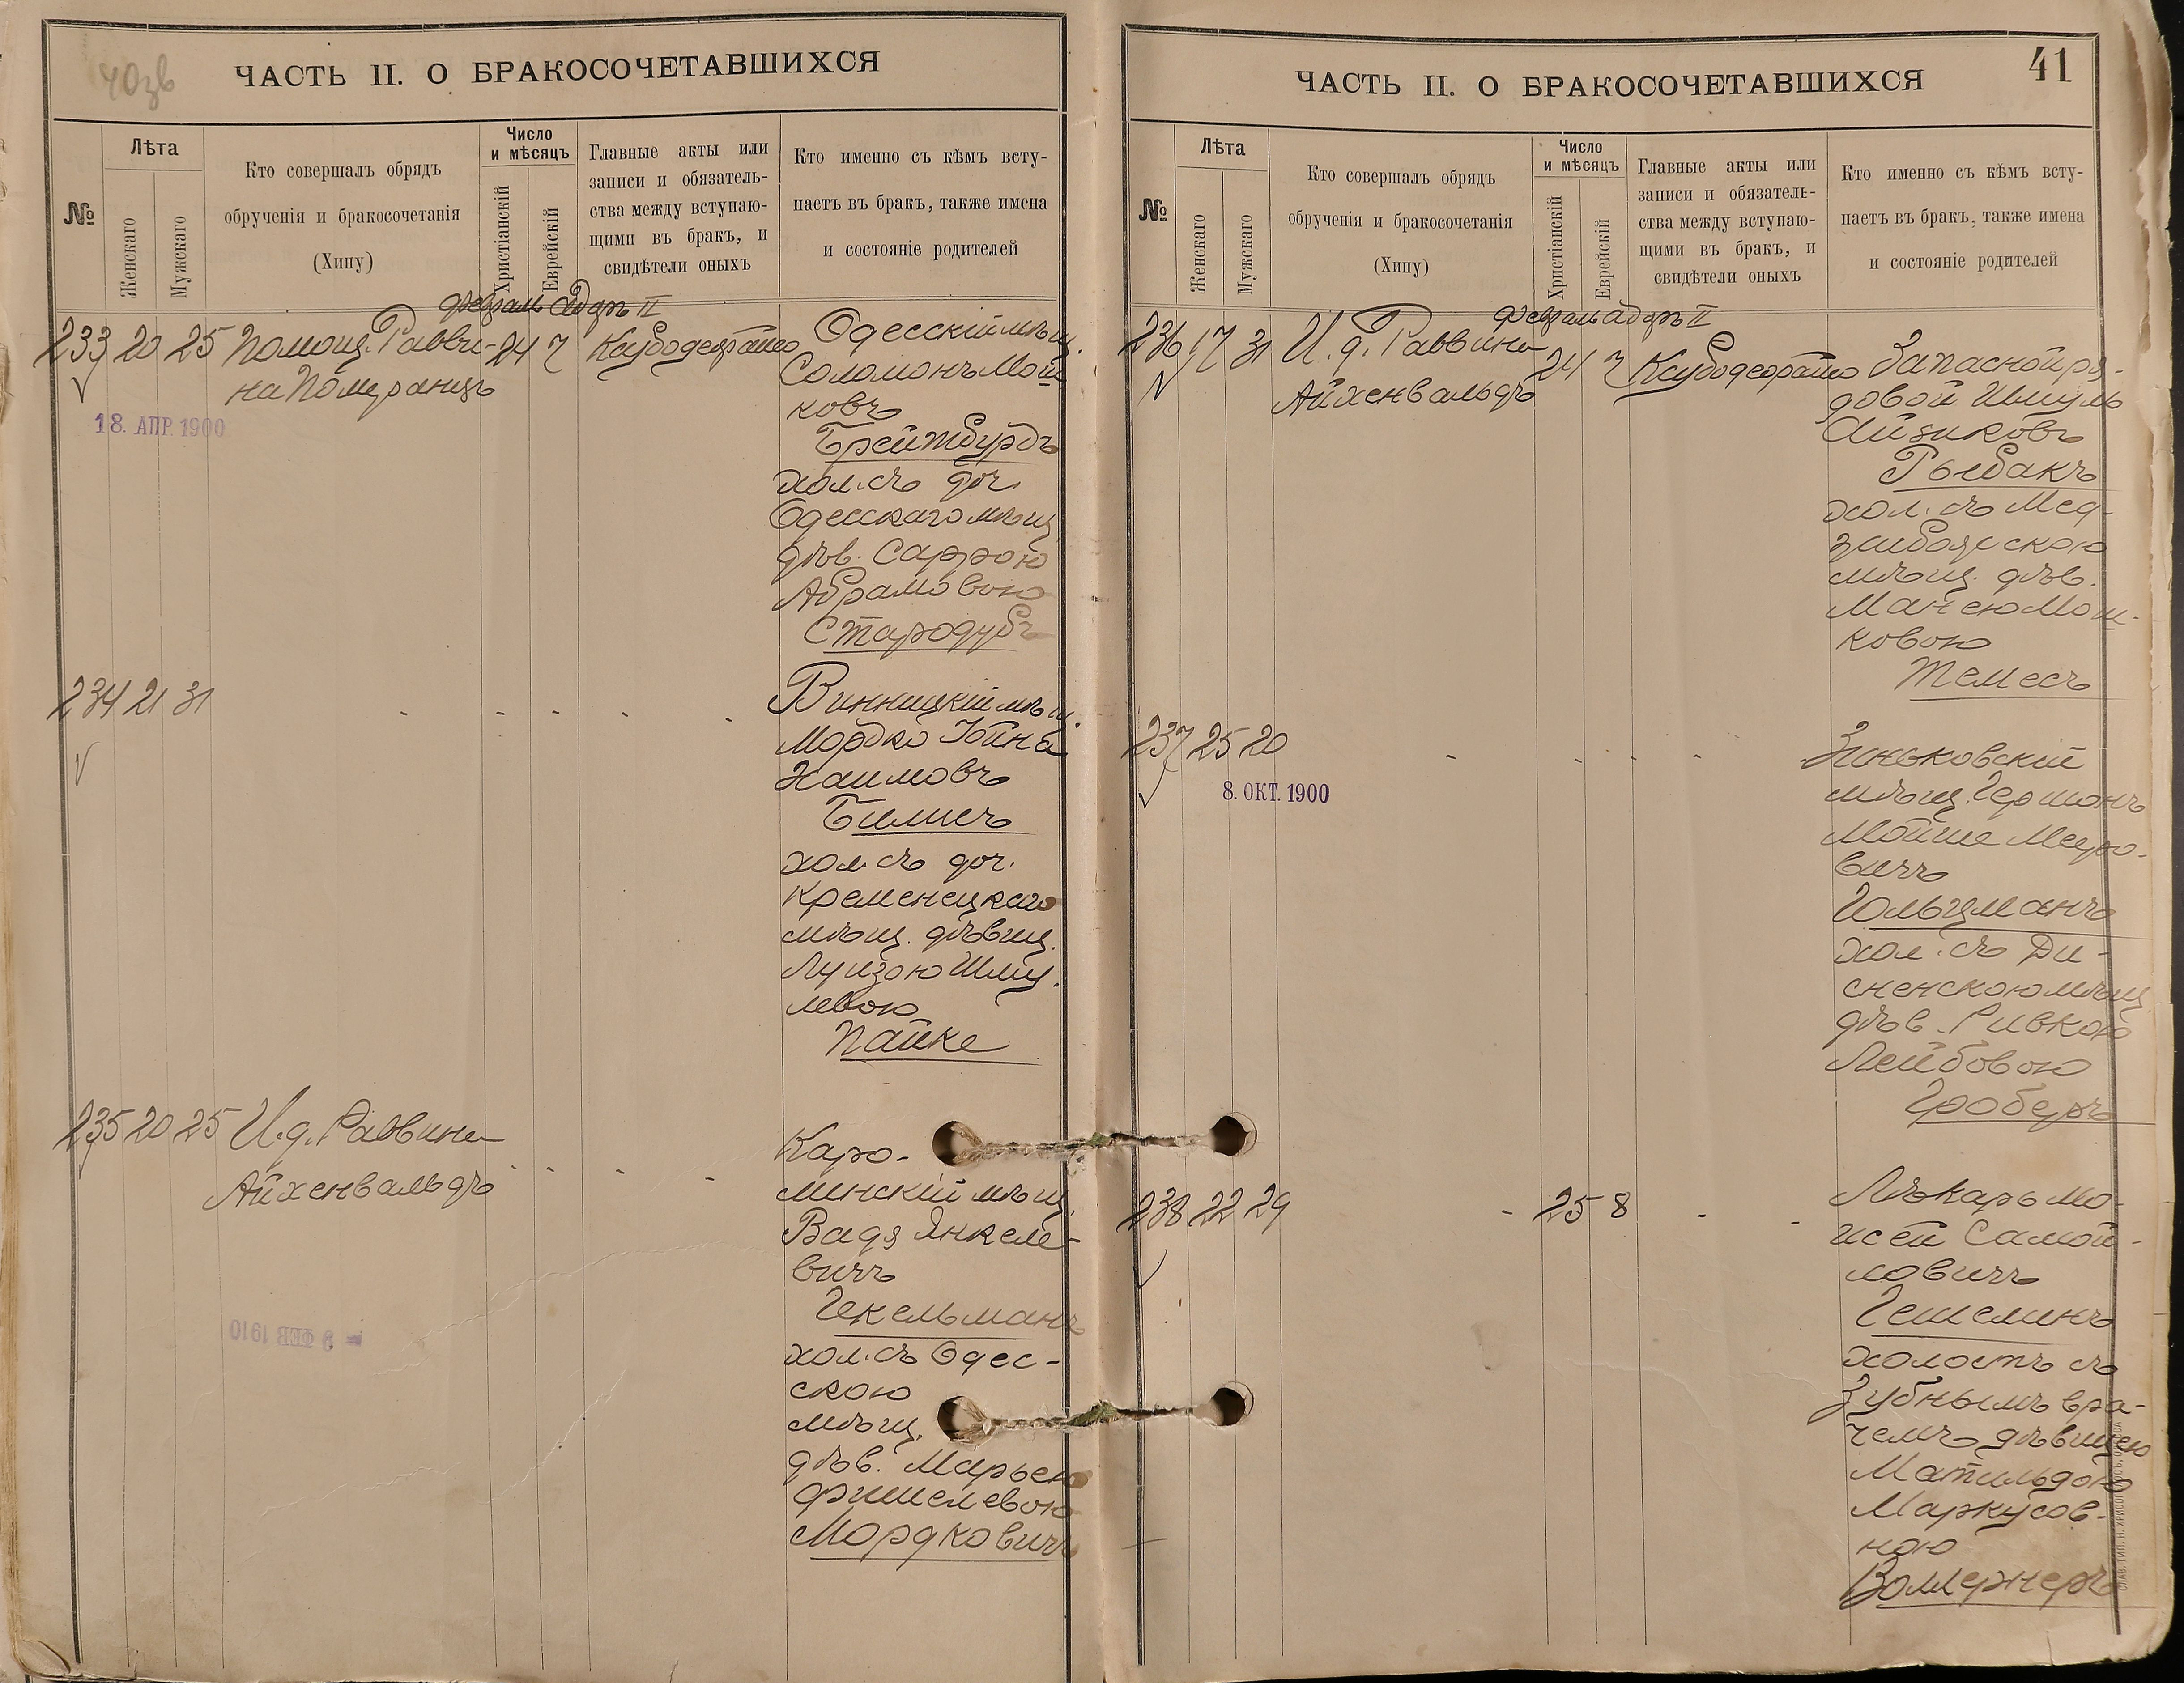 40зв
ЧАСТЬ II. О БРАКОСОЧЕТАВШИХСЯ
№
Лѣта
Женскаго
Мужскаго
Кто совершалъ обрядъ
обрученія и бракосочетанія
(Хипу)
Число
и мѣсяцъ
Христіанскій
Еврейскій
Главные акты или
записи и обязатель-
ства между вступаю-
щими въ бракъ, и
свидѣтели оныхъ
Кто именно съ кѣмъ всту-
паетъ въ бракъ, также имена
и состояніе родителей
Февраль Адаръ II
233 20 25 Помощ. Равви- 24 7
на Померанцъ
18. АПР. 1900
Одесскій мѣщ.
Соломонъ Мош
ковъ
Брейтбурдъ
хол. съ доч.
Одесскаго мѣщ
дѣв. Саррою
Абрамовою
Стародубъ
234 21 31 - - - - -
Винницкій мѣщ.
Мордко Іойна
Хаимовъ
Билисъ
хол. съ доч.
Кременецкаго
мѣщ. дѣвиц.
Луизою Шму-
левою
Пайке
235 20 25 И. д. Раввина
Айхенвальдъ - - - -
Каро-
линскій мѣщ.
Вадя Янкеле-
вичъ
Гекельманъ
хол. съ Одес-
скою
мѣщ.
дѣв. Марьею
Фишелевою
Мордковичъ
ФЕВ 1910
41
ЧАСТЬ II. О БРАКОСОЧЕТАВШИХСЯ
№
Лѣта
Женскаго
Мужскаго
Кто совершалъ обрядъ
обрученія и бракосочетанія
(Хипу)
Число
и мѣсяцъ
Христіанскій
Еврейскій
Главные акты или
записи и обязатель-
ства между вступаю-
щими въ бракъ, и
свидѣтели оныхъ
Кто именно съ кѣмъ всту-
паетъ въ бракъ, также имена
и состояніе родителей
Февраль Адаръ II
236 17 31 И. д. Раввина 24 7
Айхенвальдъ
Запасной ря-
довой Шмуль
Айзиковъ
Рыбакъ
хол. съ Мед-
жибожскою
мѣщ. дѣв.
Манею Мош-
ковою
Темесъ
237 25 20 - - - -
8. ОКТ. 1900
Зиньковскій
мѣщ. Гершонъ
Мойше Мееро-
вичъ
Гольцманъ
хол. съ Ди-
сненскою мѣщ
дѣв. Ривкою
Лейбовою
Гроберъ
238 22 29 - 25 8 - -
Лѣкарь Мо-
исей Самой-
ловичъ
Гешелинъ
холостъ съ
Зубнымъ вра-
чемъ дѣвицею
Матильдою
Маркусов-
ною
Воллернеръ